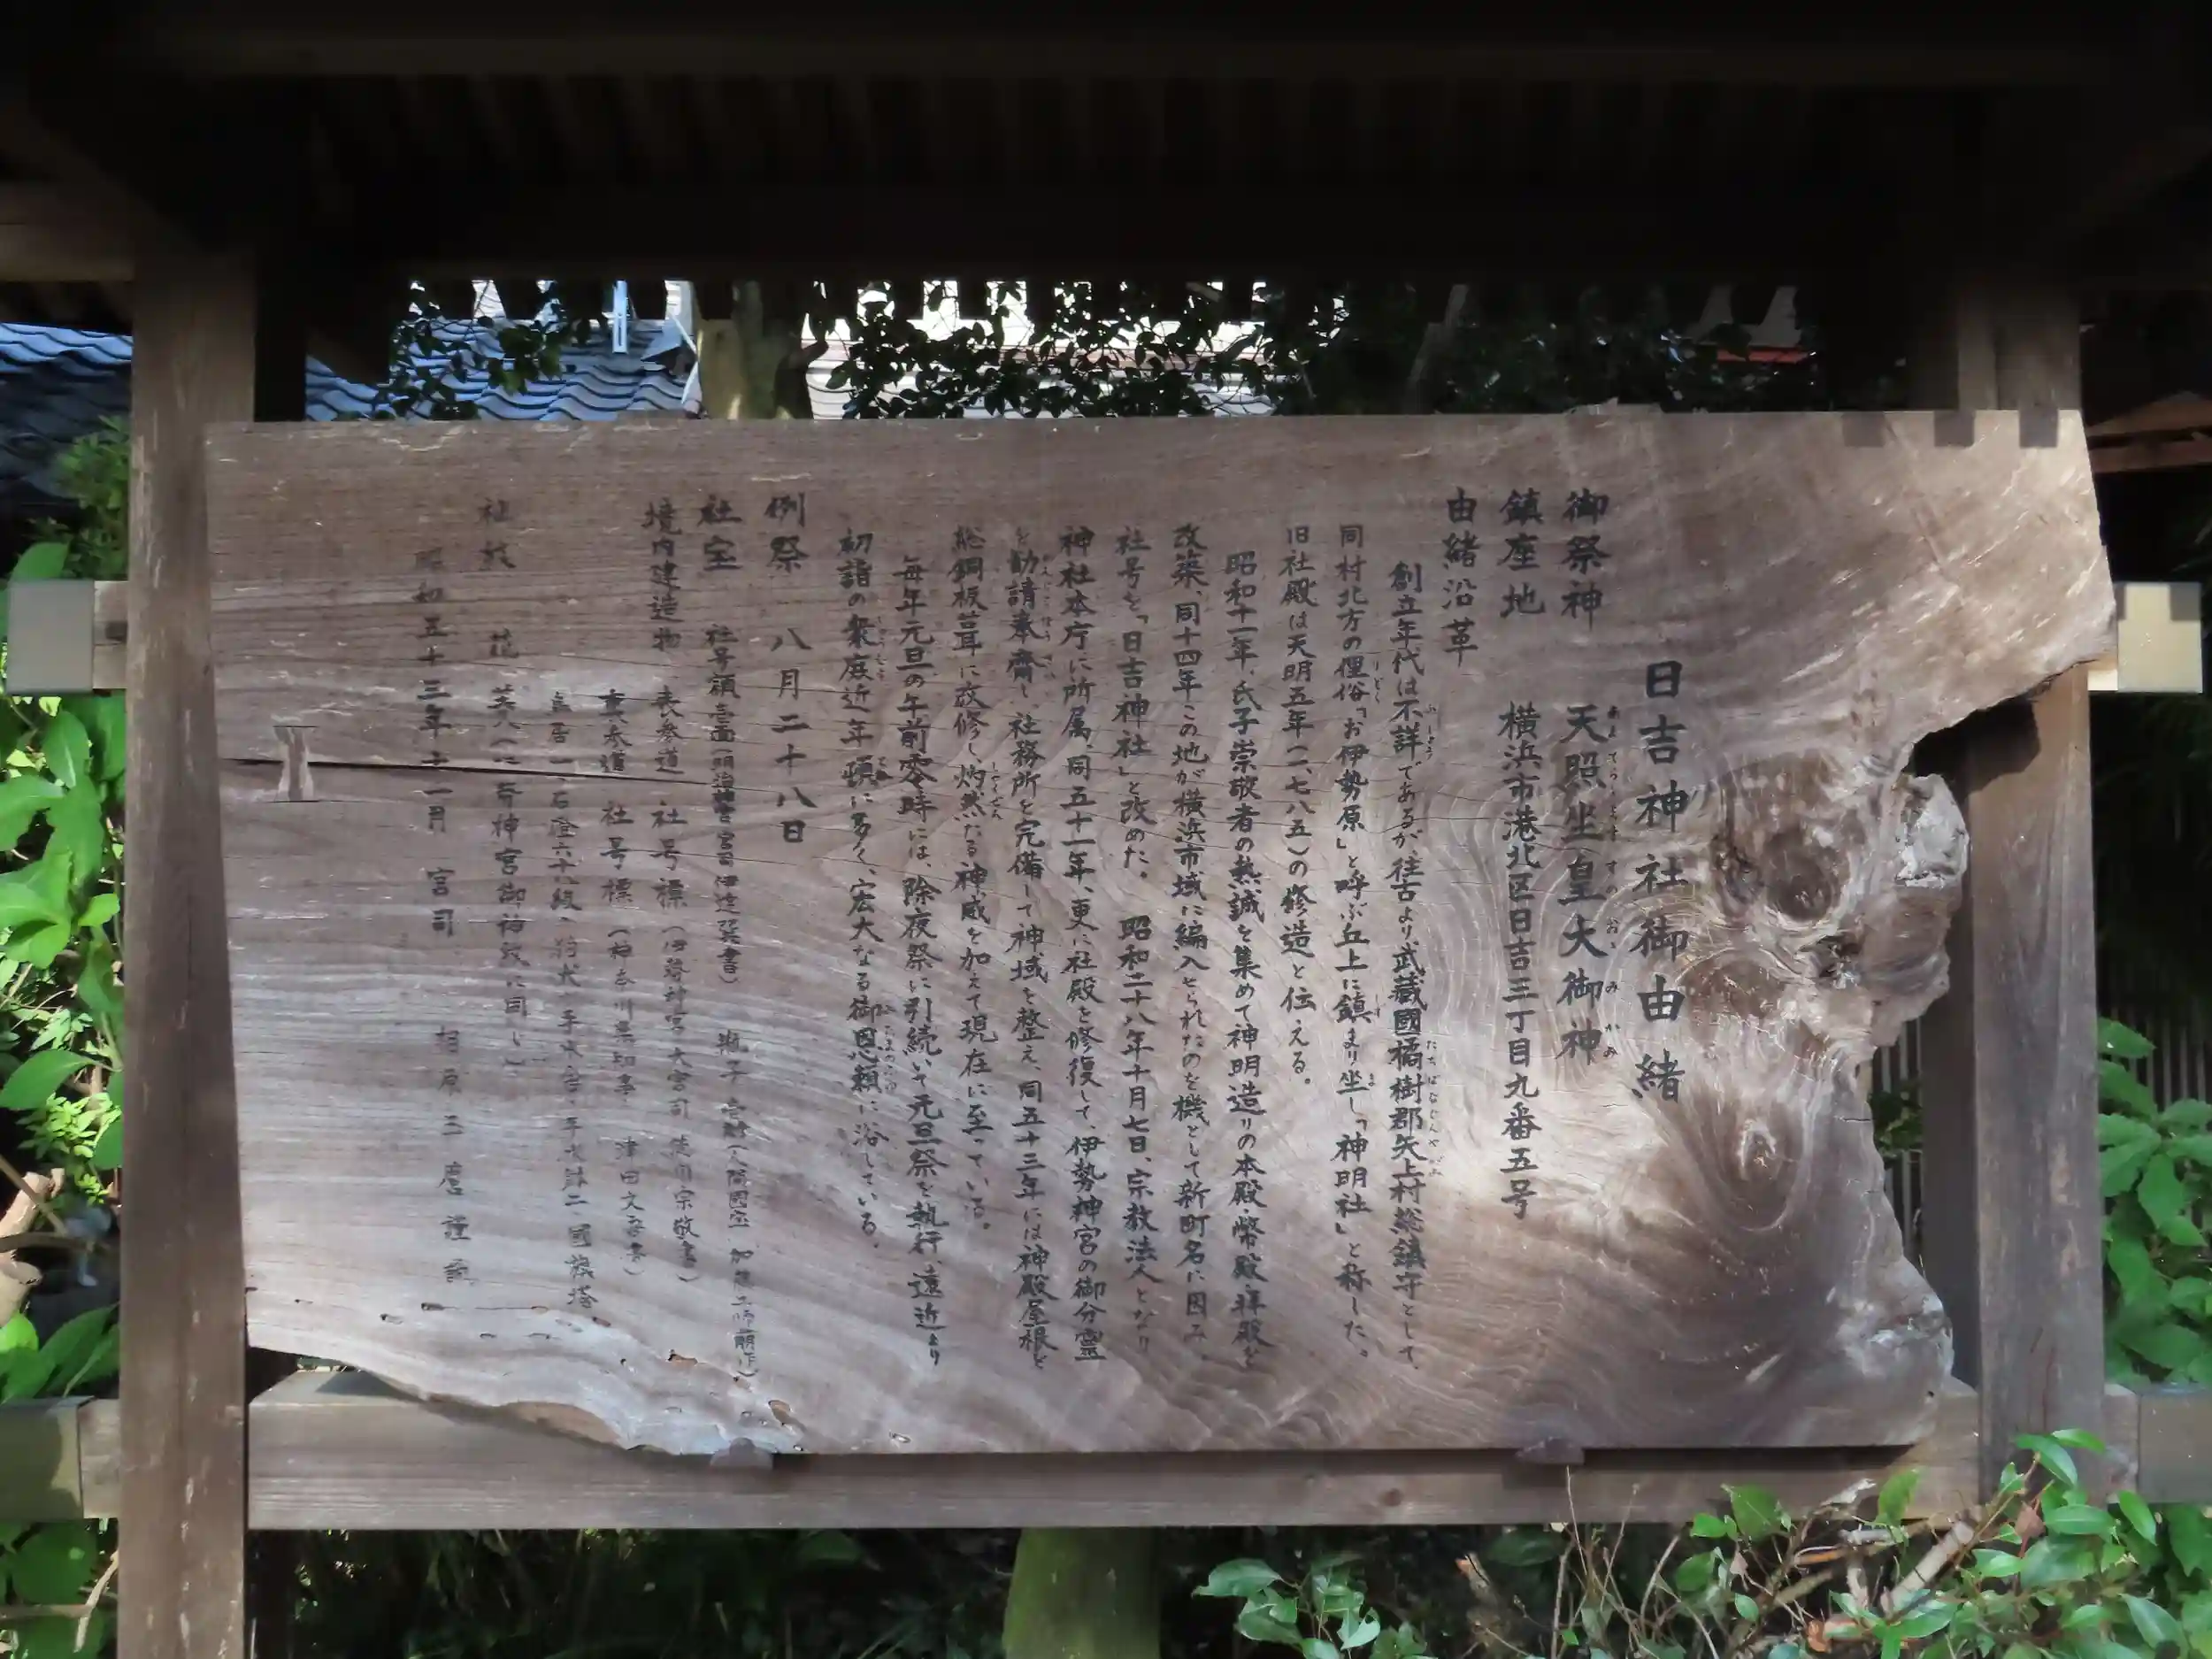 日吉神社御由緒
御祭神 天照坐皇大御神
鎮座地 横浜市港北区日吉三丁目九番五号
由緒沿革
創立年代は不詳であるが、往古より、武蔵國橘樹郡矢上村総鎮守として、
同村北方の俚俗「お伊勢原」と呼ぶ丘上に鎮まり坐し「神明社」と称した。
旧社殿は天明五年(一、七八五)の修造と伝える。
昭和十一年、氏子崇敬者の熱誠を集めて神明造りの本殿、幣殿、拝殿を
改築、同十四年この地が横浜市域に編入せられたのを機として新町名に因み、
社号を「日吉神社」と改めた。 昭和二十八年十月七日、宗教法人となり
神社本庁に所属、同五十一年、更に社殿を修復して、伊勢神宮の御分霊
を勧請奉齋し、社務所を完備して神域を整え、同五十三年には神殿屋根を
総銅板葺に改修し、灼然たる神威を加えて現在に至っている。
毎年元旦の午前零時には、除夜祭に引続いて元旦祭を執行、遠近より
初詣の衆庭近年頓に多く、宏大なる御恩頼に浴している。
例祭 八月二十八日
社宝 社号額 壱面(明治神宮宮司 伊達巽書) 瓶子 壱対
境内建造物 表参道 社号標(伊勢神宮大宮司 徳川宗敬書)
裏参道 社号標(神奈川県知事 津田文吾書)
鳥居一、石燈六十八段、狛犬、手水舎、 國旗塔
社紋 花菱(伊勢神宮御神紋に同じ)
昭和五十三年十一月 宮司 相原